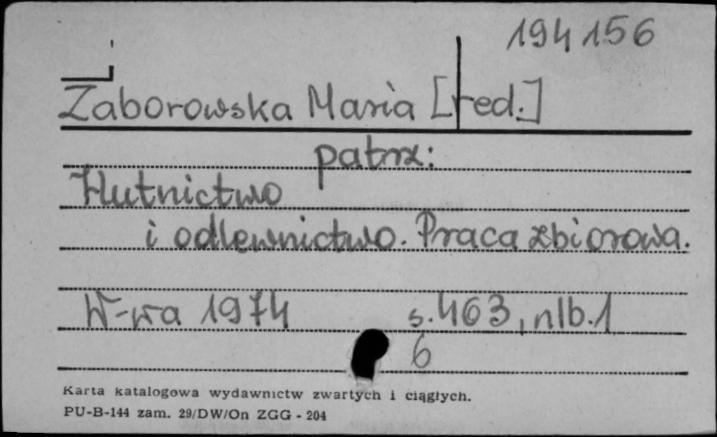 194156
Zaborowska Maria [red.]
patrz:
Hutnictwo
i odlewnictwo. Praca zbiorowa.
W-wa 1974 s.463, nlb.1
6
Karta katalogowa wydawnictw zwartych i ciągłych.
PU-B-144 zam. 29/DW/On ZGG - 204